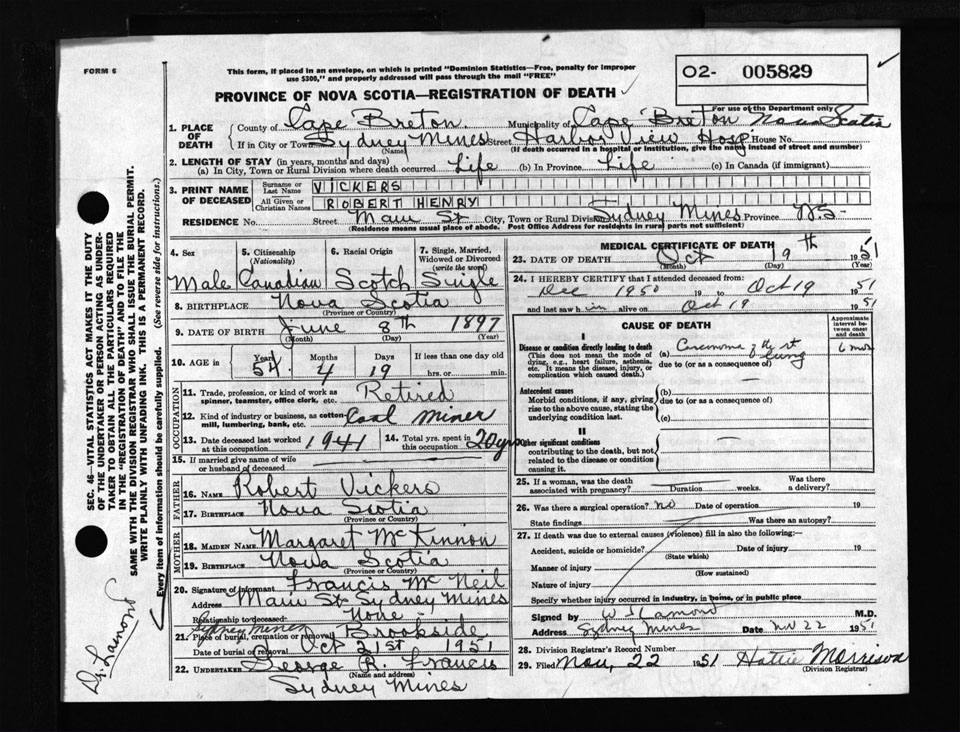 FORM 6
This form, if placed in an envelope, on which is printed "Dominion Statistics—Free, penalty for improper
use $300," and properly addressed will pass through the mail "FREE"
O2- 005829
PROVINCE OF NOVA SCOTIA—REGISTRATION OF DEATH
For use of the Department only
1. PLACE OF DEATH County of Cape Breton. Municipality of Cape Breton Nova Scotia
If in City or Town Sydney Mines Street Harbor View Hosp House No.
(Name) (If death occurred in a hospital or institution, give the name instead of street and number)
2. LENGTH OF STAY (in years, months and days)
(a) In City, Town or Rural Division where death occurred Life (b) In Province Life (c) In Canada (if immigrant)
3. PRINT NAME OF DECEASED Surname or Last Name VICKERS
All Given or Christian Names ROBERT HENRY
RESIDENCE No. Street Main St City, Town or Rural Division Sydney Mines Province N.S-
(Residence means usual place of abode. Post Office Address for residents in rural parts not sufficient)
4. Sex Male
5. Citizenship (Nationality) Canadian
6. Racial Origin Scotch
7. Single, Married, Widowed or Divorced (write the word) Single
8. BIRTHPLACE Nova Scotia
(Province or Country)
9. DATE OF BIRTH June 8th 1897
(Month) (Day) (Year)
10. AGE in Years 54 Months 4 Days 19 If less than one day old
hrs. or min.
OCCUPATION
11. Trade, profession, or kind of work as spinner, teamster, office clerk, etc. Retired
12. Kind of industry or business, as cotton mill, lumbering, bank, etc. Coal Miner
13. Date deceased last worked at this occupation 1941 14. Total yrs. spent in this occupation 20 yrs
15. If married give name of wife or husband of deceased
FATHER
16. NAME Robert Vickers
17. BIRTHPLACE Nova Scotia
(Province or Country)
MOTHER
18. MAIDEN NAME Margaret McKinnon
19. BIRTHPLACE Nova Scotia
(Province or Country)
20. Signature of informant Francis McNeil
Address Main St Sydney Mines
Relationship to deceased None
Sydney Mines
21. Place of burial, cremation or removal Brookside
Date of burial or removal Oct 21st 1951
22. UNDERTAKER George R. Francis
(Name and address)
Sydney Mines
MEDICAL CERTIFICATE OF DEATH
23. DATE OF DEATH Oct 19th 1951
(Month) (Day) (Year)
24. I HEREBY CERTIFY that I attended deceased from:
Dec 1950 19 to Oct 19 1951
and last saw him alive on Oct 19 1951
CAUSE OF DEATH
Approximate interval between onset and death
I
Disease or condition directly leading to death
(This does not mean the mode of dying, e.g., heart failure, asthenia, etc. It means the disease, injury, or complication which caused death.)
(a) of the rt Lung 6 mos
due to (or as a consequence of)
Antecedent causes
Morbid conditions, if any, giving rise to the above cause, stating the underlying condition last.
(b)
due to (or as a consequence of)
(c)
II
Other significant conditions
contributing to the death, but not related to the disease or condition causing it.
25. If a woman, was the death associated with pregnancy? Duration weeks. Was there a delivery?
26. Was there a surgical operation? no Date of operation 19
State findings Was there an autopsy?
27. If death was due to external causes (violence) fill in also the following:—
Accident, suicide or homicide? Date of injury 19
(State which)
Manner of injury
(How sustained)
Nature of injury
Specify whether injury occurred in industry, in home, or in public place
Signed by W J Lamond M.D.
Address Sydney Mines Date Nov 22 1951
28. Division Registrar's Record Number
29. Filed Nov, 22 1951 Hattie Morrison
(Division Registrar)
SEC. 46—VITAL STATISTICS ACT MAKES IT THE DUTY
OF THE UNDERTAKER OR PERSON ACTING AS UNDERTAKER
TO OBTAIN ALL THE PARTICULARS REQUIRED
IN THE "REGISTRATION OF DEATH" AND TO FILE THE
SAME WITH THE DIVISION REGISTRAR WHO SHALL ISSUE THE BURIAL PERMIT.
WRITE PLAINLY WITH UNFADING INK. THIS IS A PERMANENT RECORD.
Every item of information should be carefully supplied. (See reverse side for instructions.)
Dr. Lamond